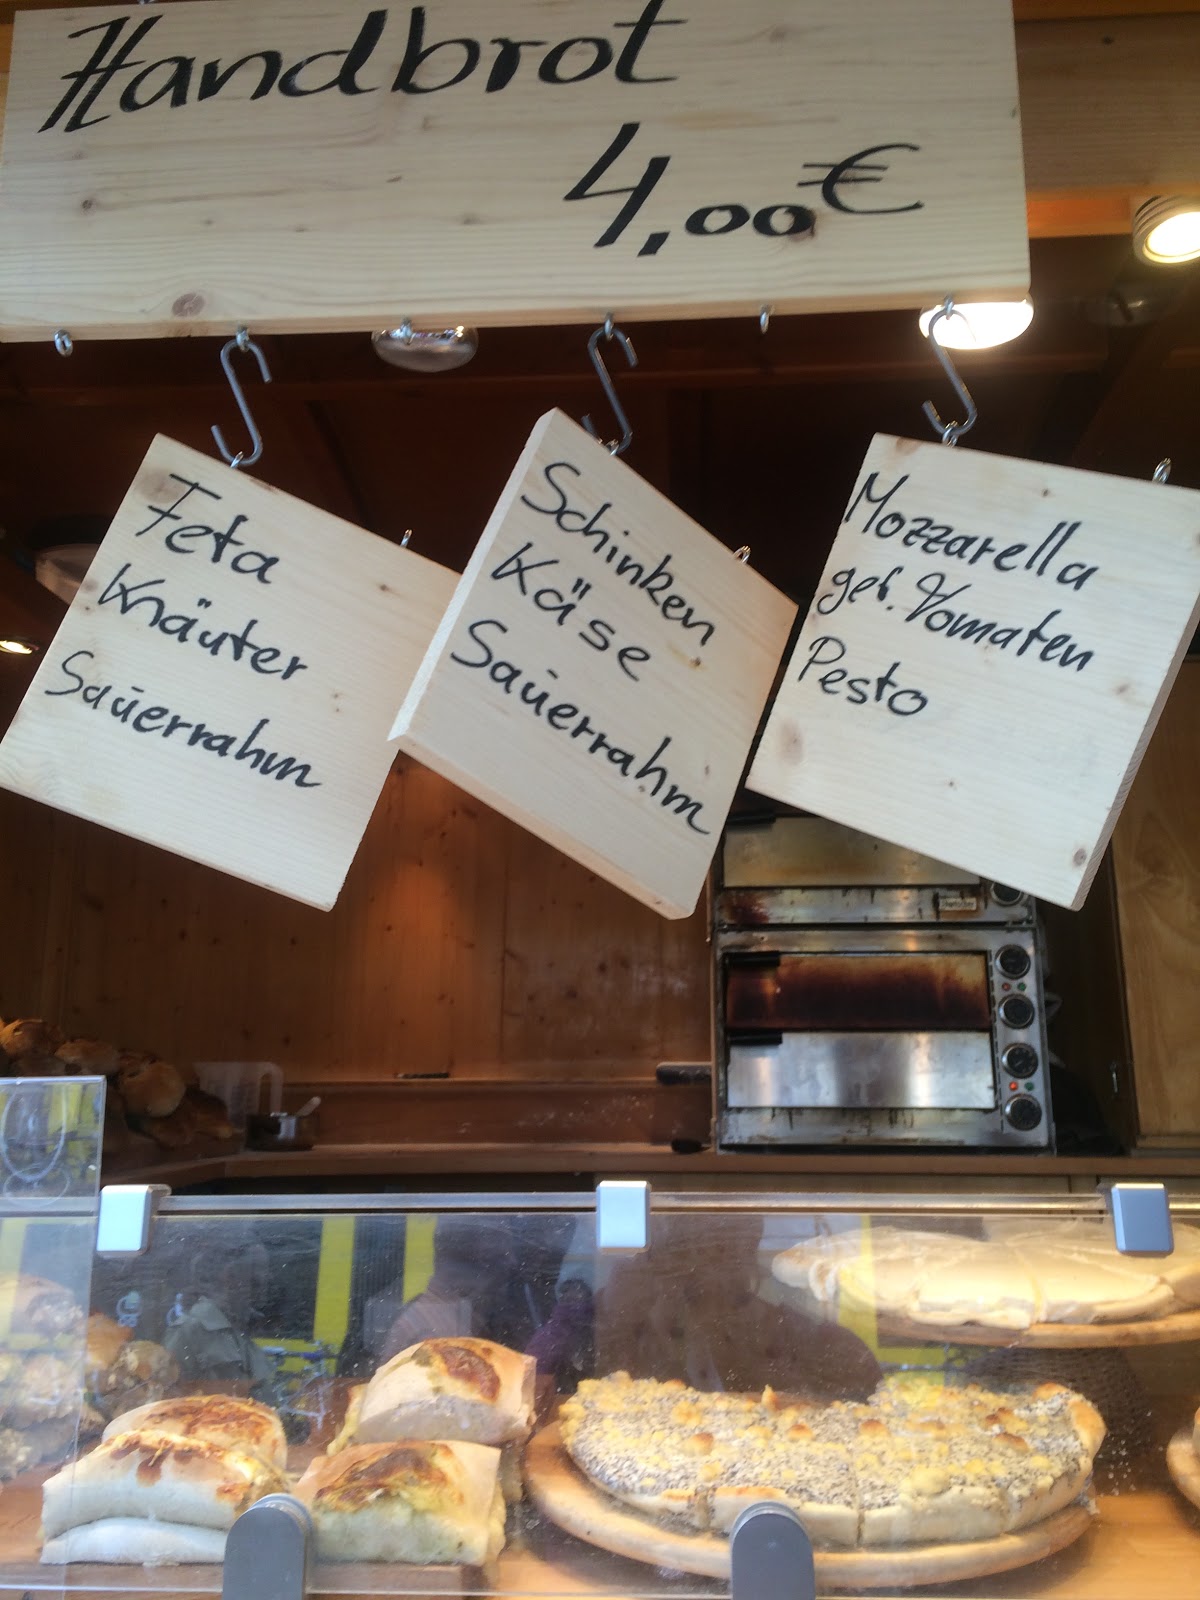 Handbrot
4,00€
Feta
Kräuter
Sauerrahm
Schinken
Käse
Sauerrahm
Mozzarella
get. Tomaten
Pesto